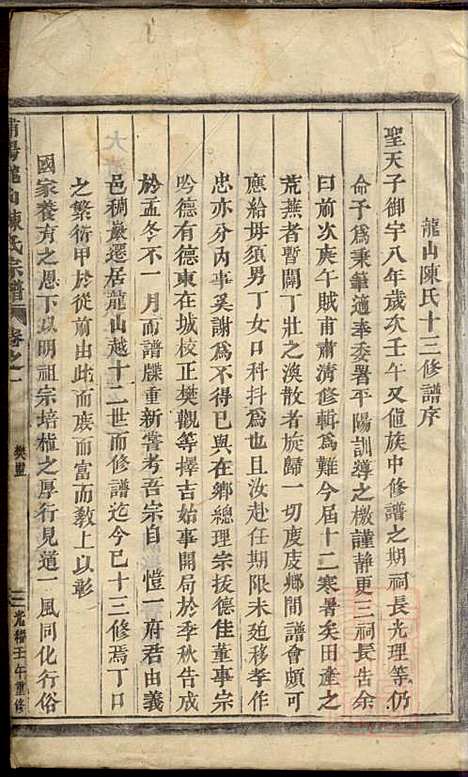 龍山陳氏十三修譜序
聖天子御宇八年歲次壬午又值族中修譜之期祠長光理等仍
命予為秉筆適奉委署平陽訓導之檄謹靜更三祠長告余
曰前次庚午賊甫肅清修輯為難今屆十二寒暑矣田產之
荒蕪者暫闢丁壯之渙散者旋歸一切度支鄉間譜會頗可
應給毋須男丁女口科抖為也且汝赴任期限未廹移孝作
忠亦分內事奚謝為不得已與在鄉總理宗拔德佳董事宗
吟德有德東在城校正樊觀等擇吉始事開局於季秋告成
於孟冬不一月而譜牒重新耆考吾宗自 愷一府君由義
邑稠巖遷居龍山越十二世而修譜迄今已十三修焉丁口
之繁衍甲於從前由此而庶而富而教上以彰
國家養育之恩下以明祖宗培植之厚行見道一風同化行俗
莆陽龍山陳氏宗譜 卷之一 樊豐 光緒壬午重修